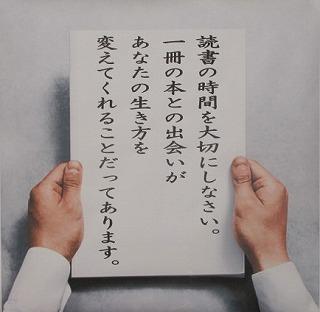 読書の時間を大切にしなさい。
一冊の本との出会いが
あなたの生き方を
変えてくれることだってあります。